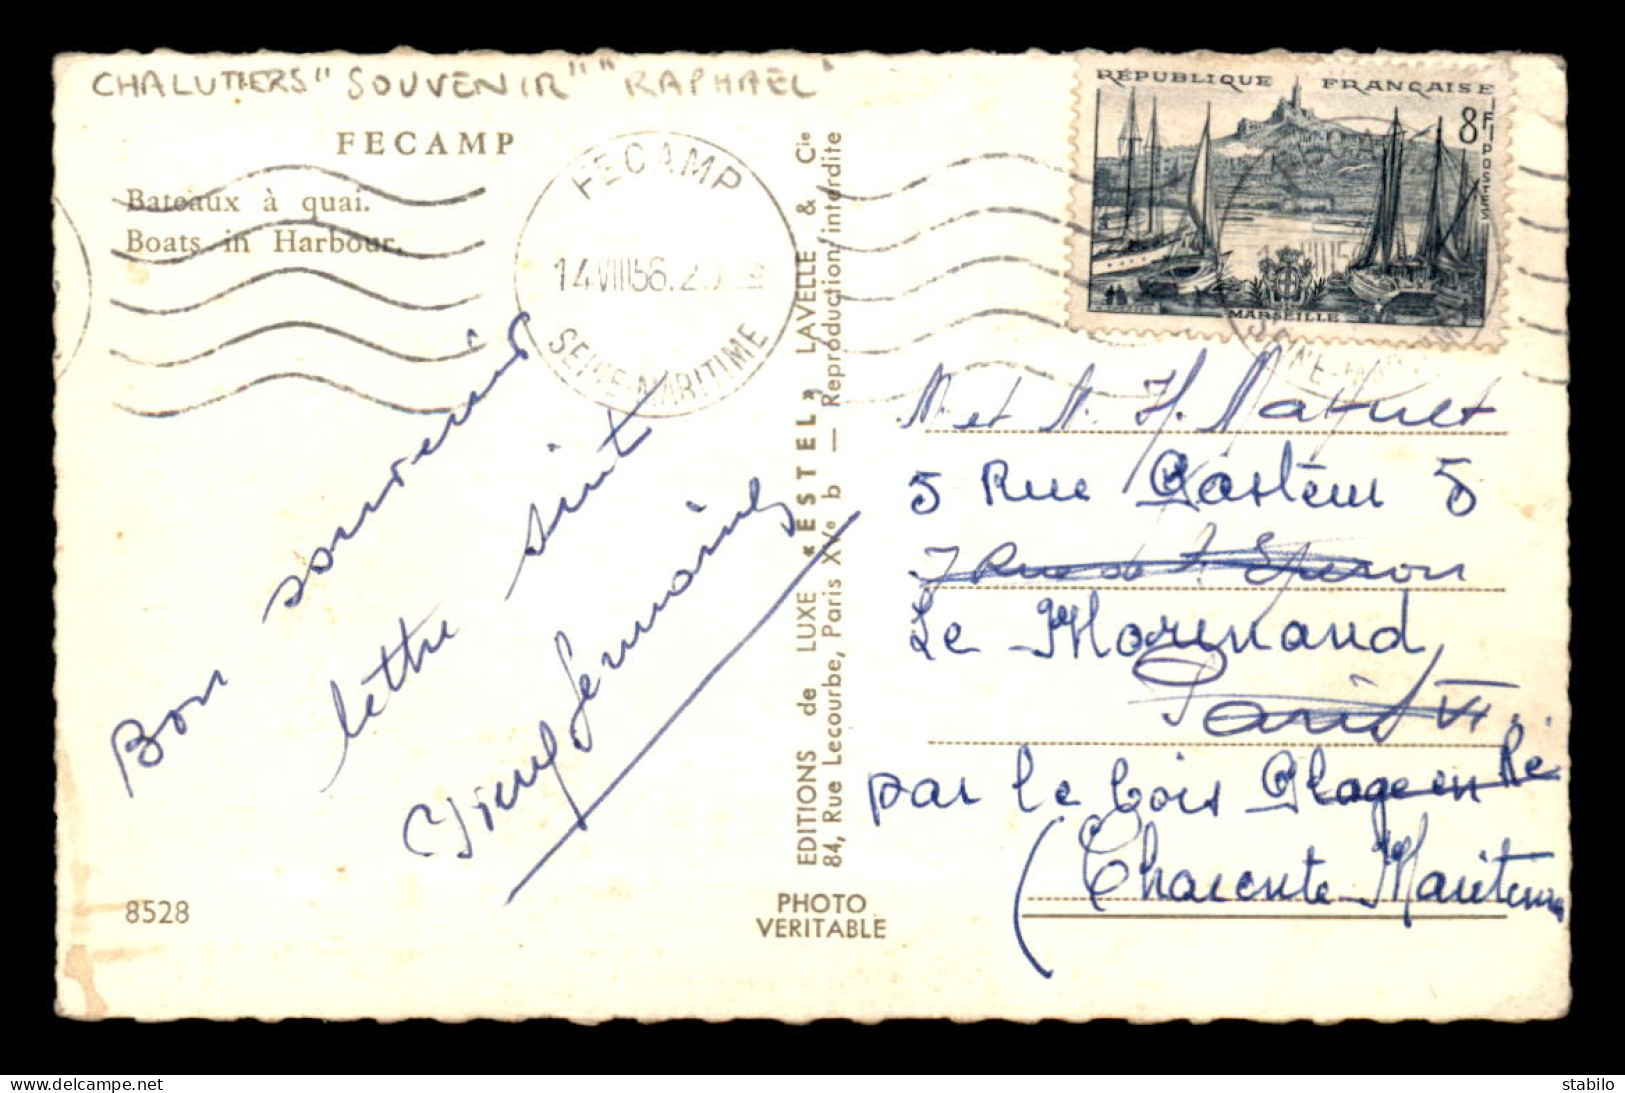 CHALUTIERS "SOUVENIR" "RAPHAËL"
FECAMP
Bateaux à quai.
Boats in Harbour.
FECAMP
14 VIII 56
SEINE-MARITIME
Bon souvenir
lettre suit
8528
EDITIONS de LUXE « ESTEL » LAVELLE & Cie
84, Rue Lecourbe, Paris XVe b — Reproduction interdite
PHOTO
VERITABLE
RÉPUBLIQUE FRANÇAISE
8F
POSTES
MARSEILLE
SEINE-MARITIME
M. et M. H.
5 Rue Pasteur 5
7 Rue de l'Eperon
Le Morinand
Paris VI
par le bois Plage en Ré
(Charente Maritime
www.delcampe.net
stabilo